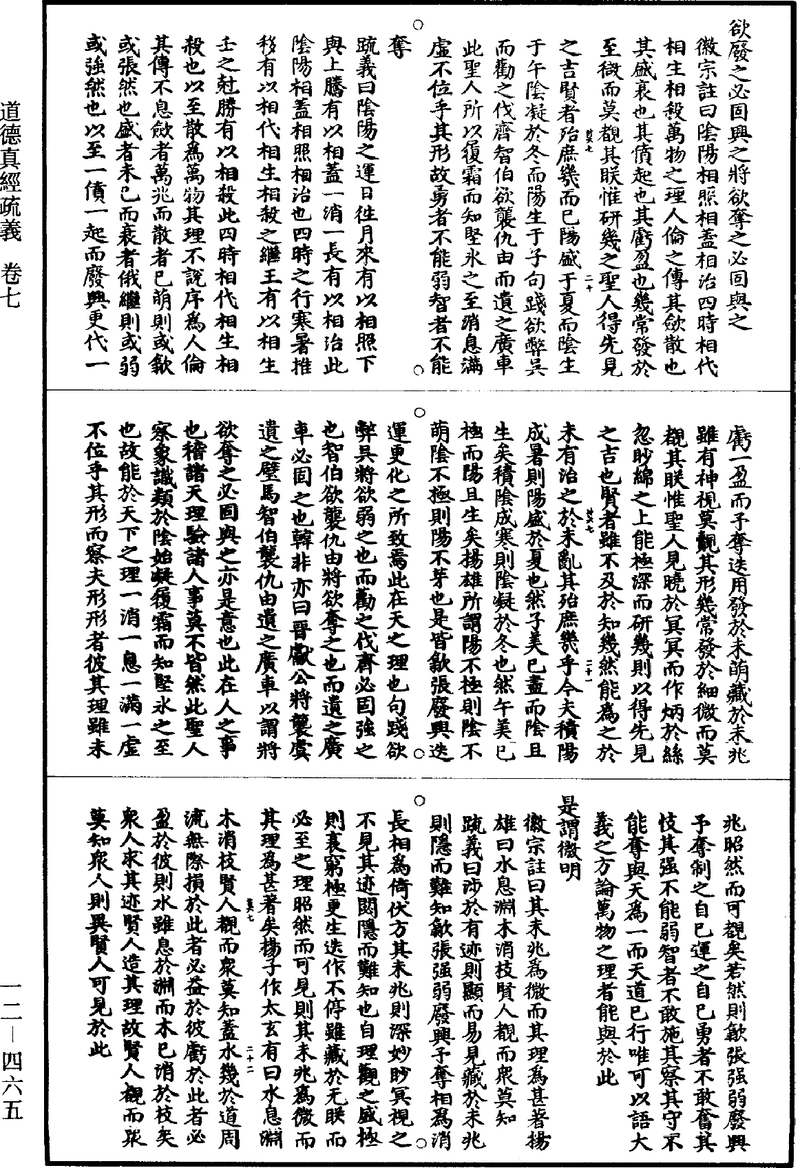 道德真經疏義　卷七
一二—四六五
欲廢之必固興之將欲奪之必固與之
徽宗註曰陰陽相照相蓋相治四時相代
相生相殺萬物之理人倫之傳其歛散也
其盛衰也其僨起也其虧盈也幾常發於
至微而莫覩其朕惟研幾之聖人得先見
之吉賢者殆庶幾而已陽盛于夏而陰生
于午陰凝於冬而陽生于子句踐欲弊吳
而勸之伐齊智伯欲襲仇由而遺之廣車
此聖人所以履霜而知堅氷之至消息滿
虛不位乎其形故勇者不能弱智者不能
奪
疏義曰陰陽之運日往月來有以相照下
與上騰有以相蓋一消一長有以相治此
陰陽相蓋相照相治也四時之行寒暑推
移有以相代相生相殺之繼王有以相生
壬之尅勝有以相殺此四時相代相生相
殺也以至散為萬物其理不說序為人倫
其傳不息歛者萬兆而散者已萌則或歙
或張然也盛者未已而衰者俄繼則或弱
或強然也以至一僨一起而廢興更代一
虧一盈而予奪迭用發於未萌藏於未兆
雖有神視莫覩其形幾常發於細微而莫
覩其朕惟聖人見曉於冥冥而作炳於絲
忽眇綿之上能極深而研幾則以得先見
之吉也賢者雖不及於知幾然能為之於
未有治之於未亂其殆庶幾乎今夫積陽
成暑則陽盛於夏也然子美已盡而陰且
生矣積陰成寒則陰凝於冬也然午美已
極而陽且生矣揚雄所謂陽不極則陰不
萌陰不極則陽不芽也是皆歙張廢興迭
運更化之所致焉此在天之理也句踐欲
弊吳將欲弱之也而勸之伐齊必固強之
也智伯欲襲仇由將欲奪之也而遺之廣
車必固之也韓非亦曰晉獻公將襲虞
遺之璧馬智伯襲仇由遺之廣車以謂將
欲奪之必固與之亦是意也此在人之事
也稽諸天理驗諸人事莫不皆然此聖人
察象識類於陰始凝履霜而知堅氷之至
也故能於天下之理一消一息一滿一虛
不位乎其形而察夫形形者彼其理雖未
兆昭然而可覩矣若然則歙張強弱廢興
予奪制之自已運之自已勇者不敢奮其
忮其強不能弱智者不敢施其察其守不
能奪與天為一而天道已行唯可以語大
義之方論萬物之理者能與於此
是謂微明
徽宗註曰其未兆為微而其理為甚著揚
雄曰水息淵木消枝賢人覩而衆莫知
疏義曰涉於有迹則顯而易見藏於未兆
則隱而難知歙張強弱廢興予奪相為消
長相為倚伏方其未兆則深妙眇冥視之
不見其迹閟隱而難知也自理觀之盛極
則衰窮極更生迭作不停雖藏於无朕而
必至之理昭然而可見則其未兆為微而
其理為甚著矣揚子作太玄有曰水息淵
木消枝賢人覩而衆莫知蓋水幾於道周
流無際損於此者必益於彼虧於此者必
盈於彼則水雖息於淵而木已消於枝矣
衆人求其迹賢人造其理故賢人覩而衆
莫知衆人則異賢人可見於此